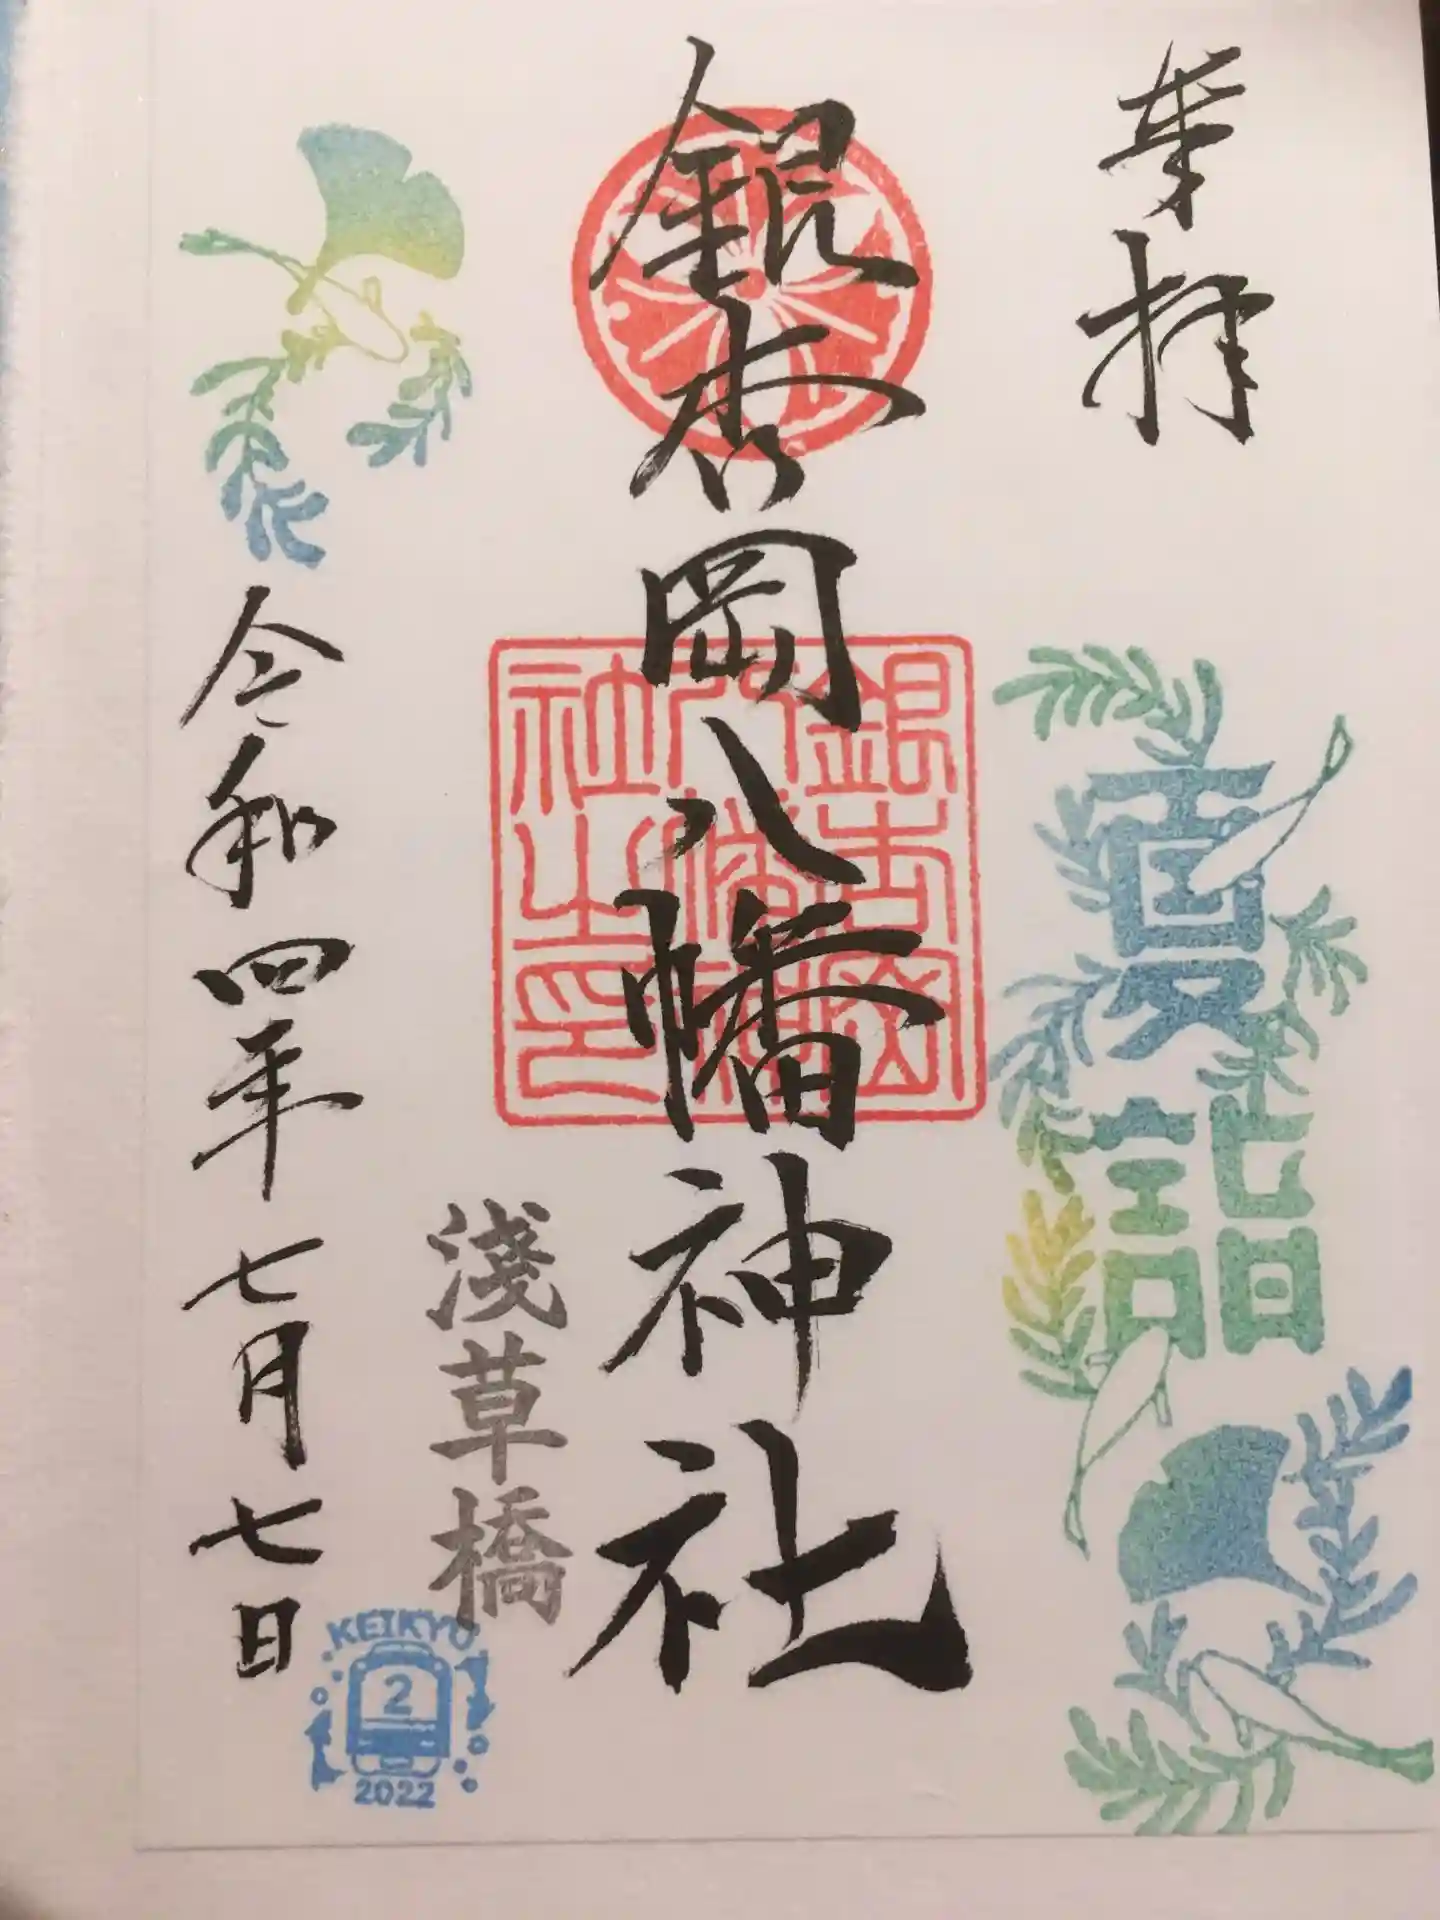 奉拝
夏詣
銀杏岡八幡神社
銀杏岡
八幡神
社之印
浅草橋
令和四年七月七日
KEIKYU
2
2022